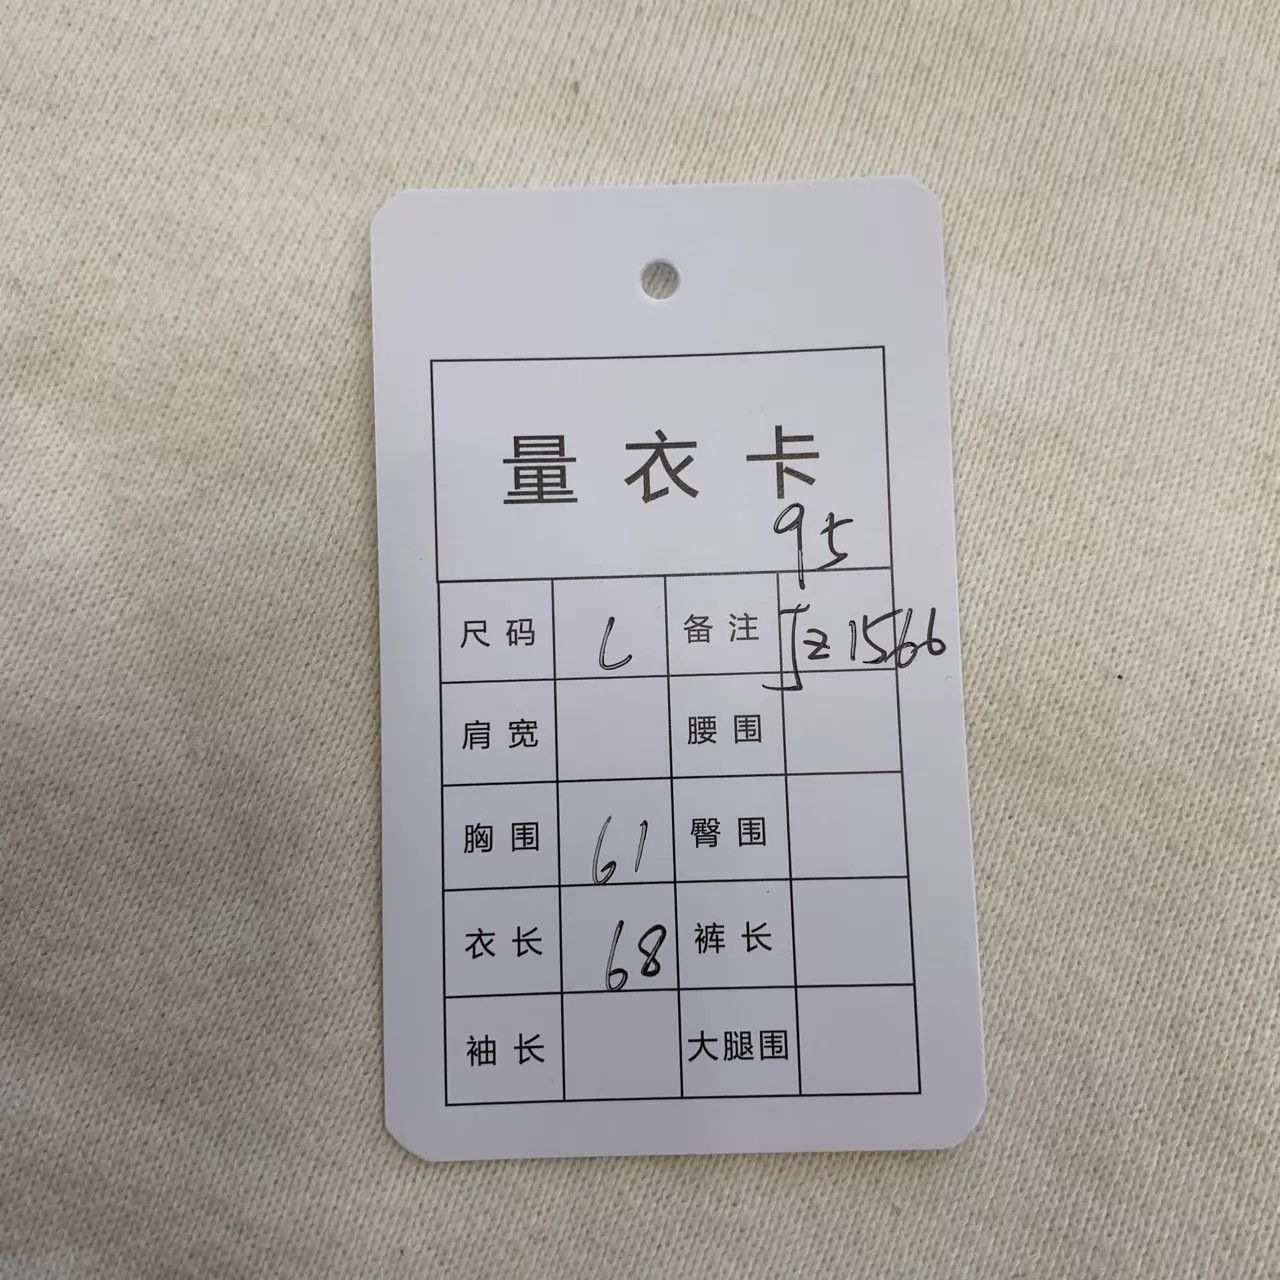 量衣卡
95
尺码 L 备注 Jz1566
肩宽 腰围
胸围 61 臀围
衣长 68 裤长
袖长 大腿围